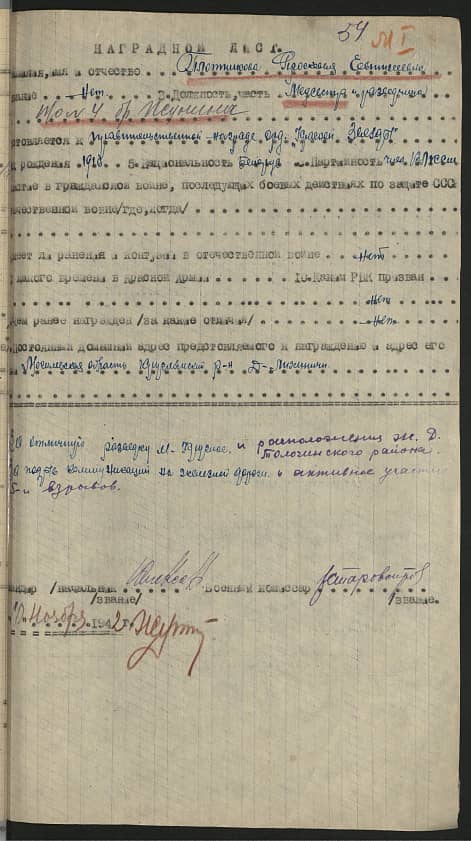 54 М I
НАГРАДНОЙ ЛИСТ.
имя и отчество Плотникова Феодосия Евтихеевна
Нет 3. Должность, часть Медсестра и разведчица
к правительственной награде орд. Красной Звезды
рождения 1918 5. Национальность Белорус 6. Партийность член ВЛКСМ
в гражданской войне, последующих боевых действиях по защите СССР
отечественной войне /где, когда/
ли ранения и контузии в отечественной войне Нет
какого времени в Красной Армии 10. Каким РВК призван
Нет
чем ранее награжден /за какие отличия/ Нет
Постоянный домашний адрес представляемого к награждению и адрес его
Могилевская область Круглянский р-н Д-
За отличную разведку м-Круглое и расположения ж. д.
Толочинского района.
коммуникаций на железной дороги и активное участие
5-и взрывов.
/начальник Военный комиссар Старовойтов
/звание/ /звание.
Ноября 1942 г.